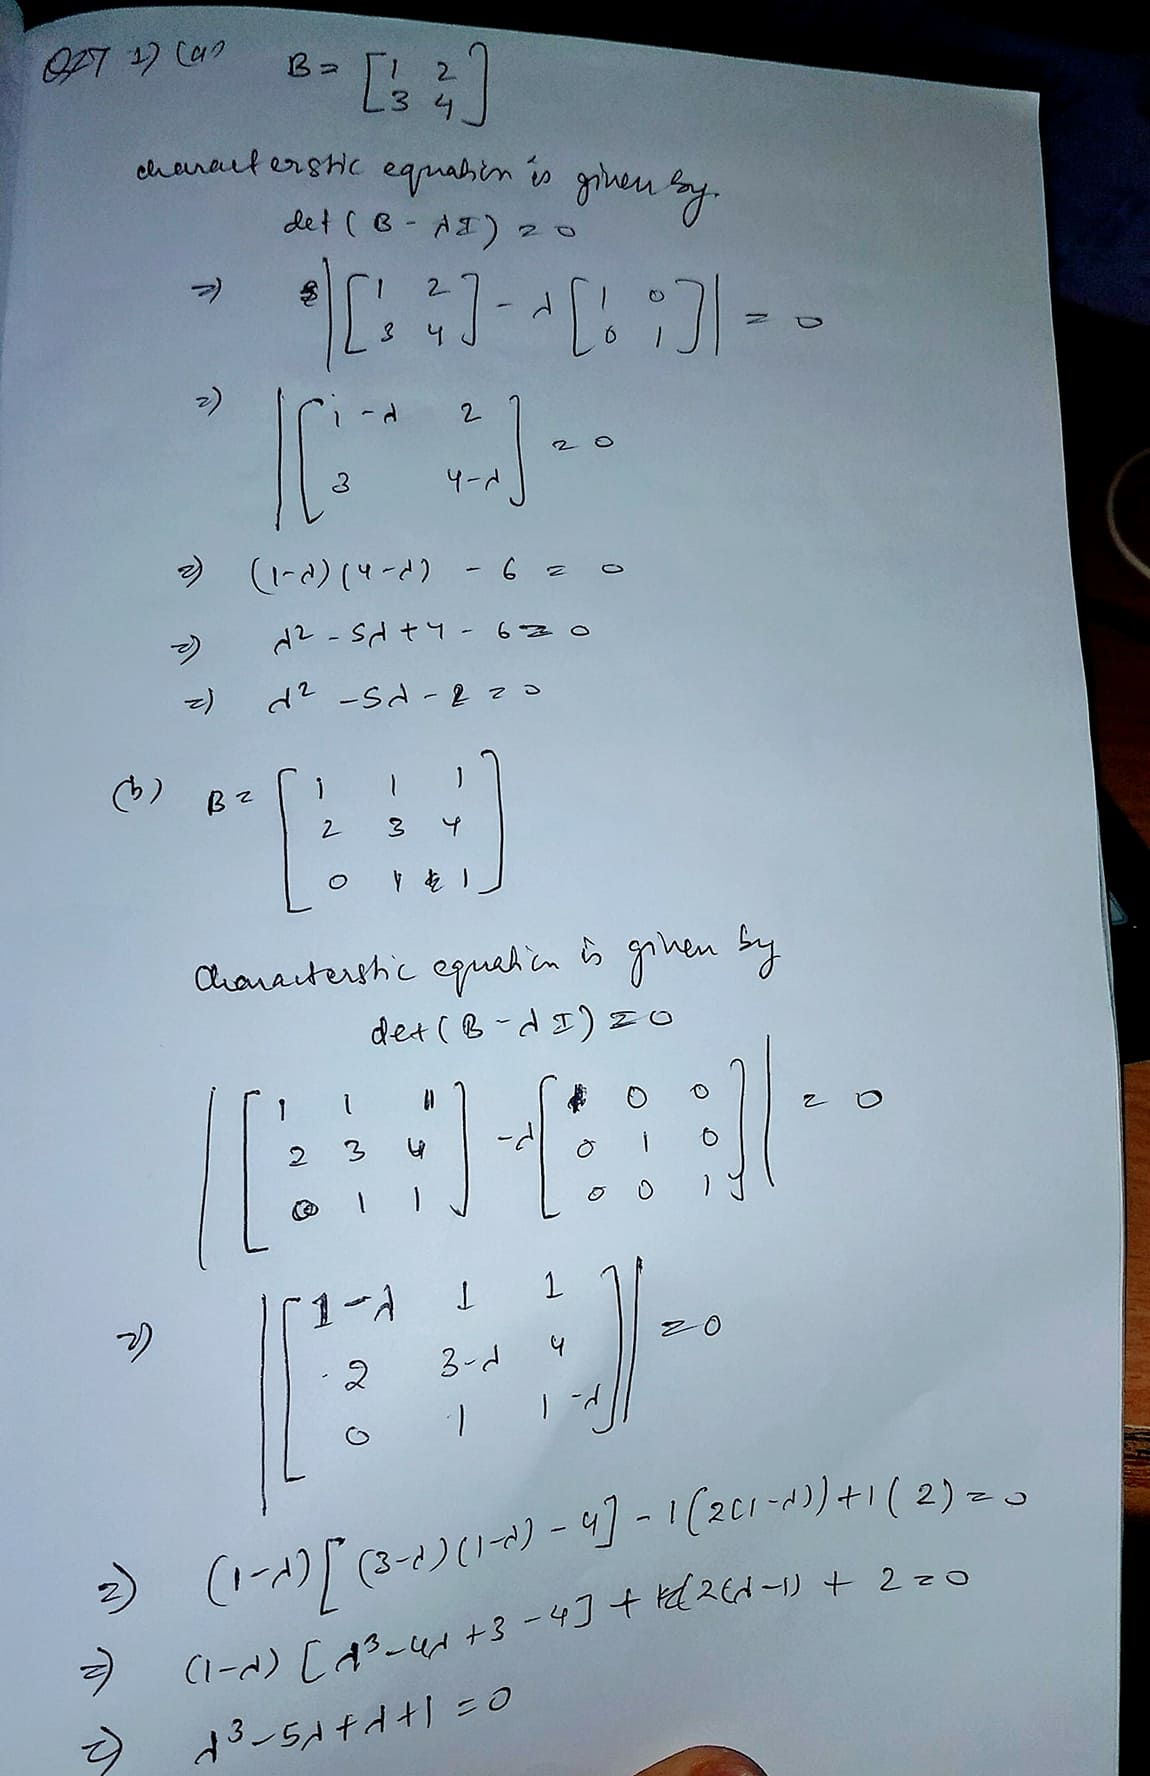 Q27 1) (a) B = [1 2
3 4]
characterstic equation is given by
det (B - λI) = 0
⇒ |[1 2
3 4] - λ[1 0
0 1]| = 0
⇒ |[1-λ 2
3 4-λ] = 0
⇒ (1-λ)(4-λ) - 6 = 0
⇒ λ² - 5λ + 4 - 6 = 0
⇒ λ² - 5λ - 2 = 0
(b) B = [1 1 1
2 3 4
0 1 1]
Characterstic equation is given by
det (B - λI) = 0
|[1 1 1
2 3 4
0 1 1] - λ[1 0 0
0 1 0
0 0 1]| = 0
⇒ |[1-λ 1 1
2 3-λ 4
0 1 1-λ]| = 0
⇒ (1-λ)[(3-λ)(1-λ) - 4] - 1(2(1-λ)) + 1(2) = 0
⇒ (1-λ)[λ³ - 4λ + 3 - 4] + 2(λ-1) + 2 = 0
⇒ λ³ - 5λ + λ + 1 = 0